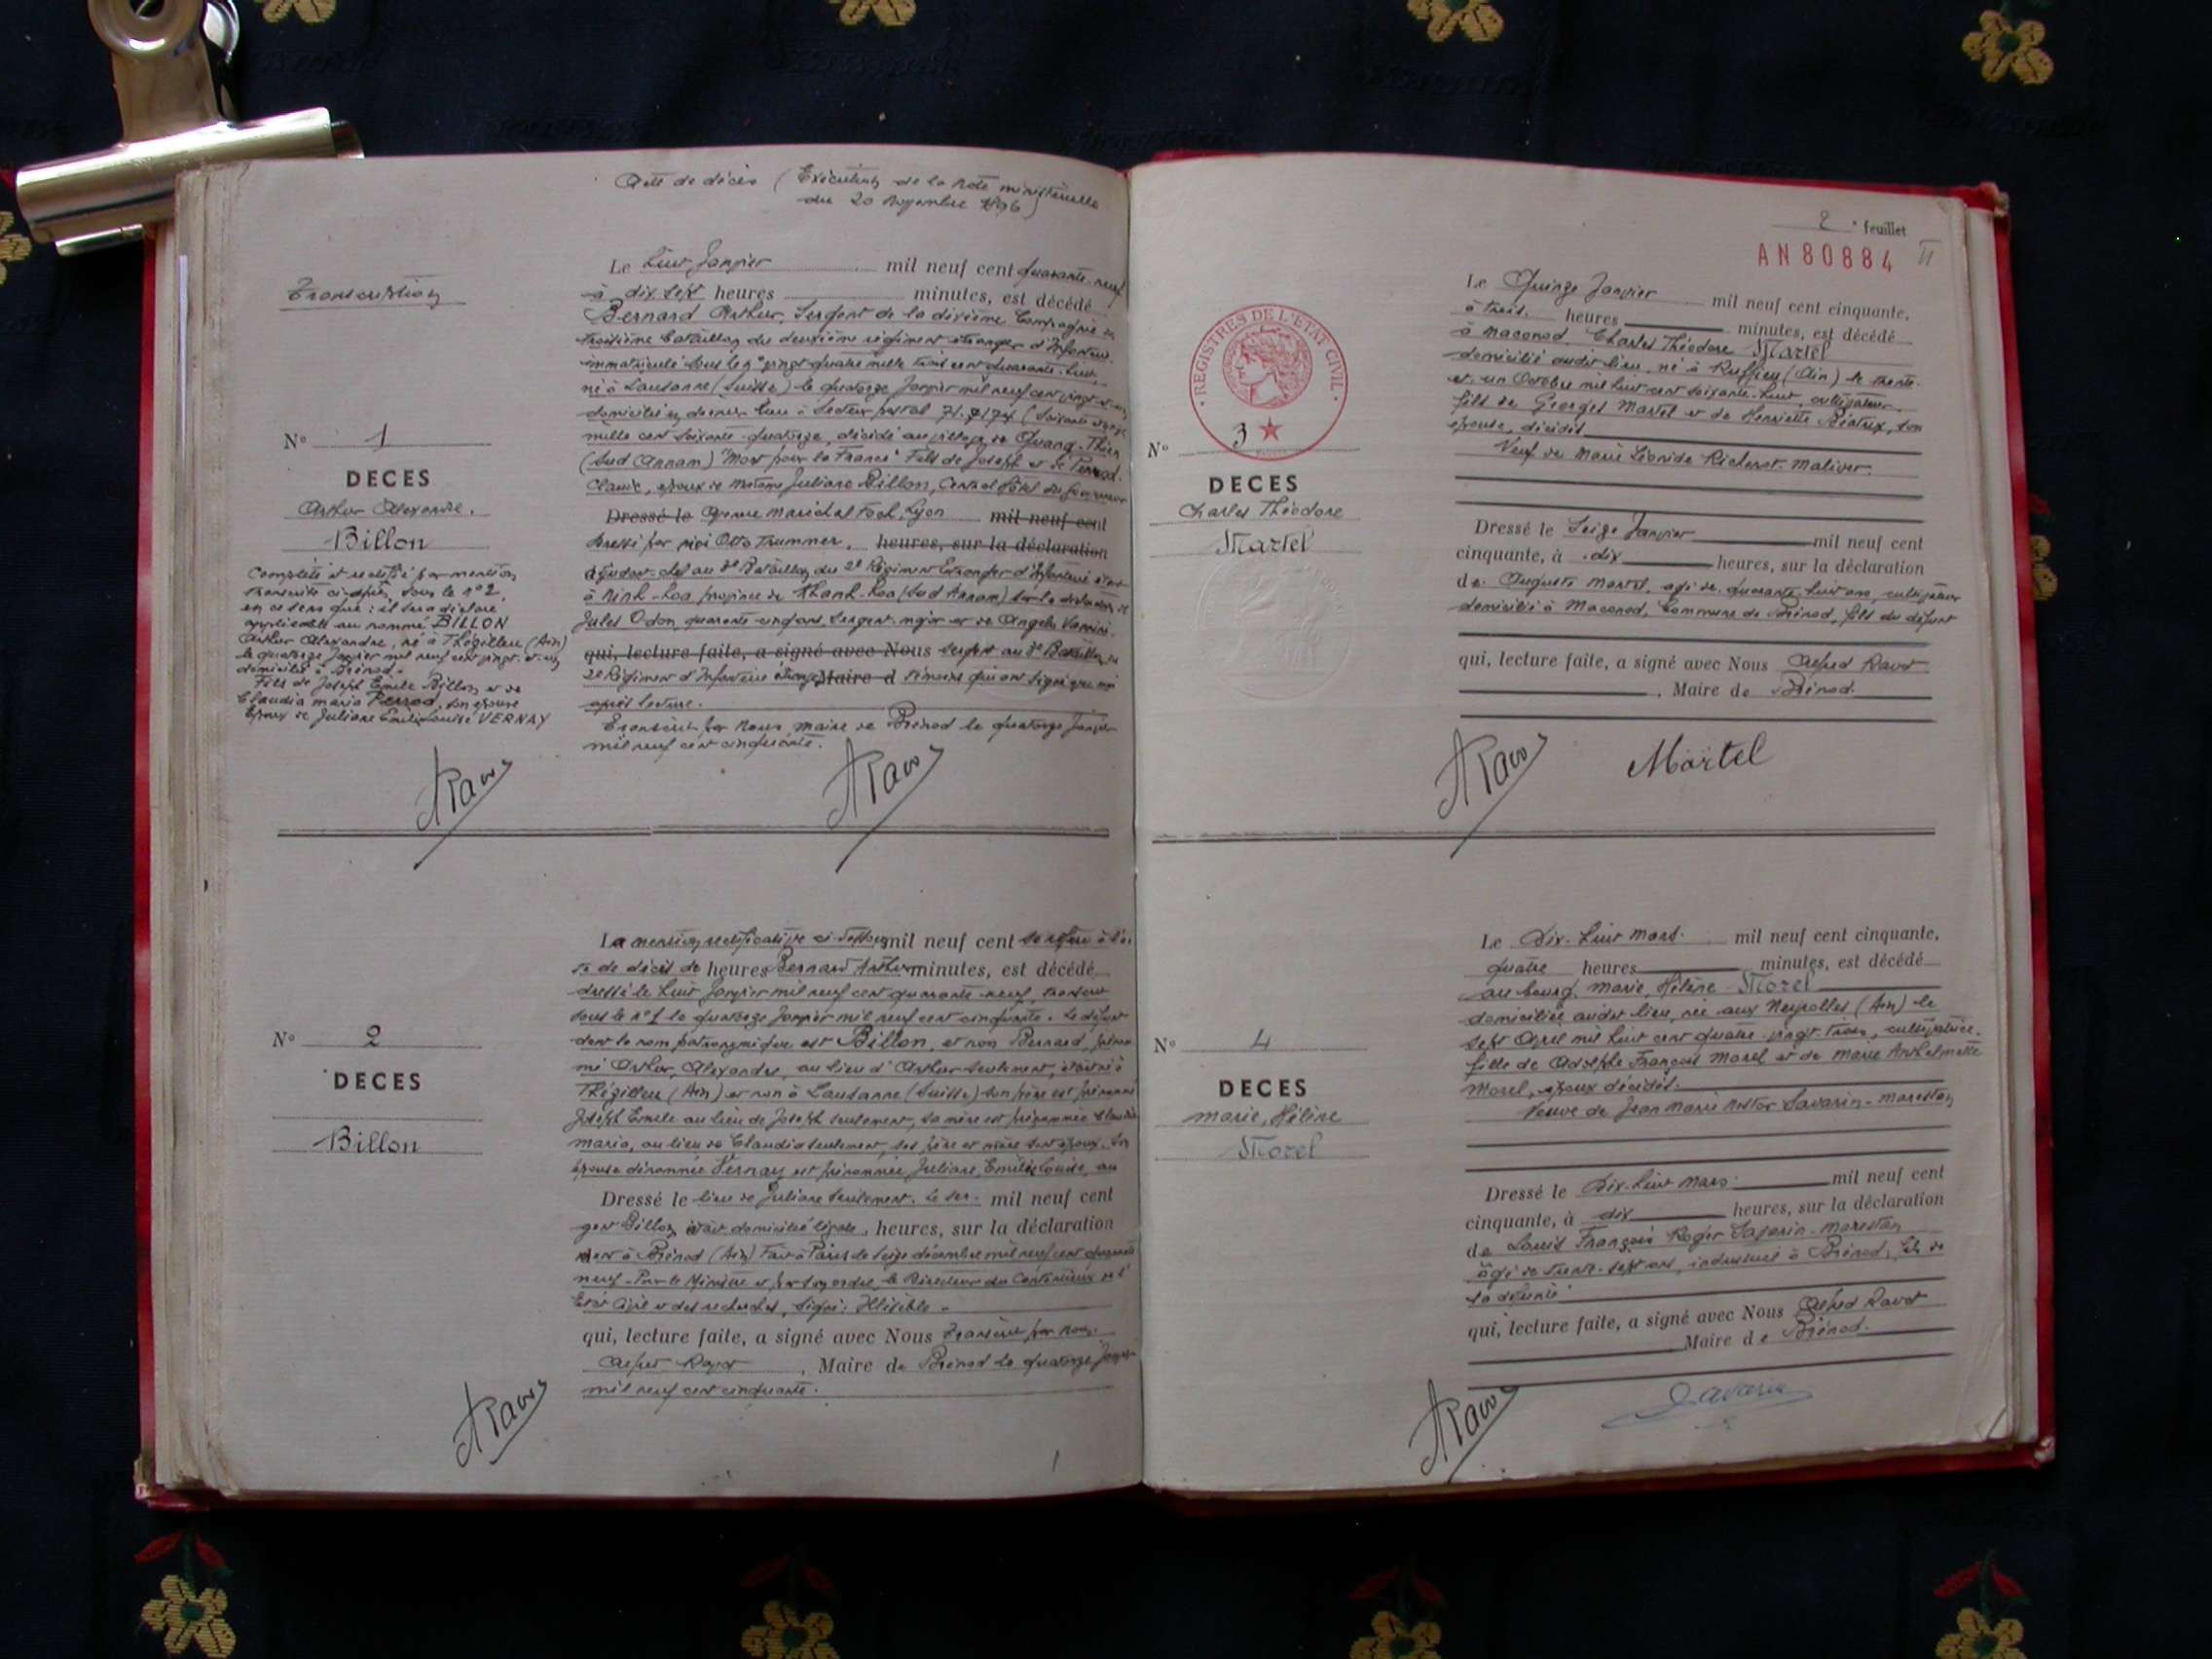 Acte de décès (Exécution de la note ministérielle
du 20 Novembre 1896)
Transcription
N° 1
DECES
Arthur Alexandre.
Billon
Complété et rectifié par mention
transcrite ci-après, sous le n° 2,
en ce sens que : il sera déclaré
applicable au nommé BILLON
Arthur Alexandre, né à Thézillieu (Ain)
le quatorze Janvier mil neuf cent vingt-et-un
domicilié à Brénod -
Fils de Joseph Emile Billon et de
Claudia Maria Perrod, son épouse
Epoux de Juliane Emilie Louise VERNAY
ARavot
Le huit Janvier mil neuf cent quarante-neuf
à dix sept heures minutes, est décédé
Bernard Arthur, Sergent de la dixième Compagnie du
troisième bataillon du deuxième régiment étranger d'Infanterie
immatriculé sous le n° vingt quatre mille trois cent quarante-huit,
né à Lausanne (Suisse) le quatorze Janvier mil neuf cent vingt-et-un
domicilié en dernier lieu à Secteur postal 71.174 (Soixante et onze
mille cent soixante-quatorze, décédé au village de Quang-Thien
(Sud Annam) "Mort pour la France" Fils de Joseph et de Perrod
Claudia, époux de Madame Juliane Billon, Central Hôtel du Gouverneur
Dressé le Avenue Maréchal Foch, Lyon mil neuf cent
dressé par moi Otto Trummer, heures, sur la déclaration
Adjudant-chef au 3e Bataillon du 2e Régiment Etranger d'Infanterie
à Ninh-Hoa province de Khanh-Hoa (Sud Annam) sur la déclaration de
Jules Odon, quarante cinq ans, Sergent-major et de Angelo Vannini
qui, lecture faite, a signé avec Nous sergent au 3e Bataillon du
2e Régiment d'Infanterie étrangère Maire d témoins qui ont signé avec moi
après lecture.
Transcrit par Nous, maire de Brénod le quatorze Janvier
mil neuf cent cinquante.
ARavot
N° 2
DECES
Billon
La mention rectificative ci-dessous mil neuf cent se réfère à l'ac
te de décès de heures Bernard Arthur minutes, est décédé
dressé le huit Janvier mil neuf cent quarante-neuf, transcrit
sous le n° 1 le quatorze Janvier mil neuf cent cinquante. Le défunt
dont le nom patronymique est Billon, et non Bernard, prénom
mé Arthur, Alexandre, au lieu d'Arthur seulement, était né à
Thézillieu (Ain) et non à Lausanne (Suisse) son père est prénommé
Joseph Emile au lieu de Joseph seulement, sa mère est prénommée Claudia
Maria, au lieu de Claudia seulement, ses père et mère sont époux. Son
épouse dénommée Vernay est prénommée Juliane, Emilie Louise, au
Dressé le lieu de Juliane seulement. Le ser- mil neuf cent
gent Billon était domicilié légale, heures, sur la déclaration
ment à Brénod (Ain) Fait à Paris le seize décembre mil neuf cent quarante
neuf - Par le Ministre et par son ordre, le Directeur du Contentieux de l'
Etat Civil et des recherches, Signé : Illisible -
qui, lecture faite, a signé avec Nous Transcrit par Nous
Alfred Ravot, Maire de Brénod le quatorze Janvier
mil neuf cent cinquante.
ARavot
2e feuillet
AN80884
II
REGISTRES DE L'ETAT CIVIL
N° 3
DECES
Charles Théodore
Martel
Le Quinze Janvier mil neuf cent cinquante,
à trois heures minutes, est décédé
à Maconod, Charles Théodore Martel
domicilié audit lieu, né à Ruffieu (Ain) le trente-
et un Octobre mil huit cent soixante-huit, cultivateur,
fils de Georges Martel et de Henriette Béatrix, son
épouse, décédés
Veuf de Marie Léonide Richerot-Maliver.
Dressé le Seize Janvier mil neuf cent
cinquante, à dix heures, sur la déclaration
de Auguste Martel, agé de quarante huit ans, cultivateur
domicilié à Maconod, Commune de Brénod, fils du défunt
qui, lecture faite, a signé avec Nous Alfred Ravot
, Maire de Brénod.
ARavot Martel
N° 4
DECES
Marie, Hélène
Morel
Le Dix-huit Mars mil neuf cent cinquante,
quatre heures minutes, est décédé
au bourg, Marie, Hélène Morel
domiciliée audit lieu, née aux Neyrolles (Ain) le
sept Avril mil huit cent quatre-vingt trois, cultivatrice.
fille de Adolphe François Morel et de Marie Anthelmette
Morel, époux décédés.
Veuve de Jean Marie Nestor Savarin-Marestan
Dressé le Dix-huit Mars mil neuf cent
cinquante, à dix heures, sur la déclaration
de Louis François Roger Savarin-Marestan
âgé de trente-sept ans, industriel à Brénod, fils de
la défunte
qui, lecture faite, a signé avec Nous Alfred Ravot
Maire de Brénod.
ARavot Savarin